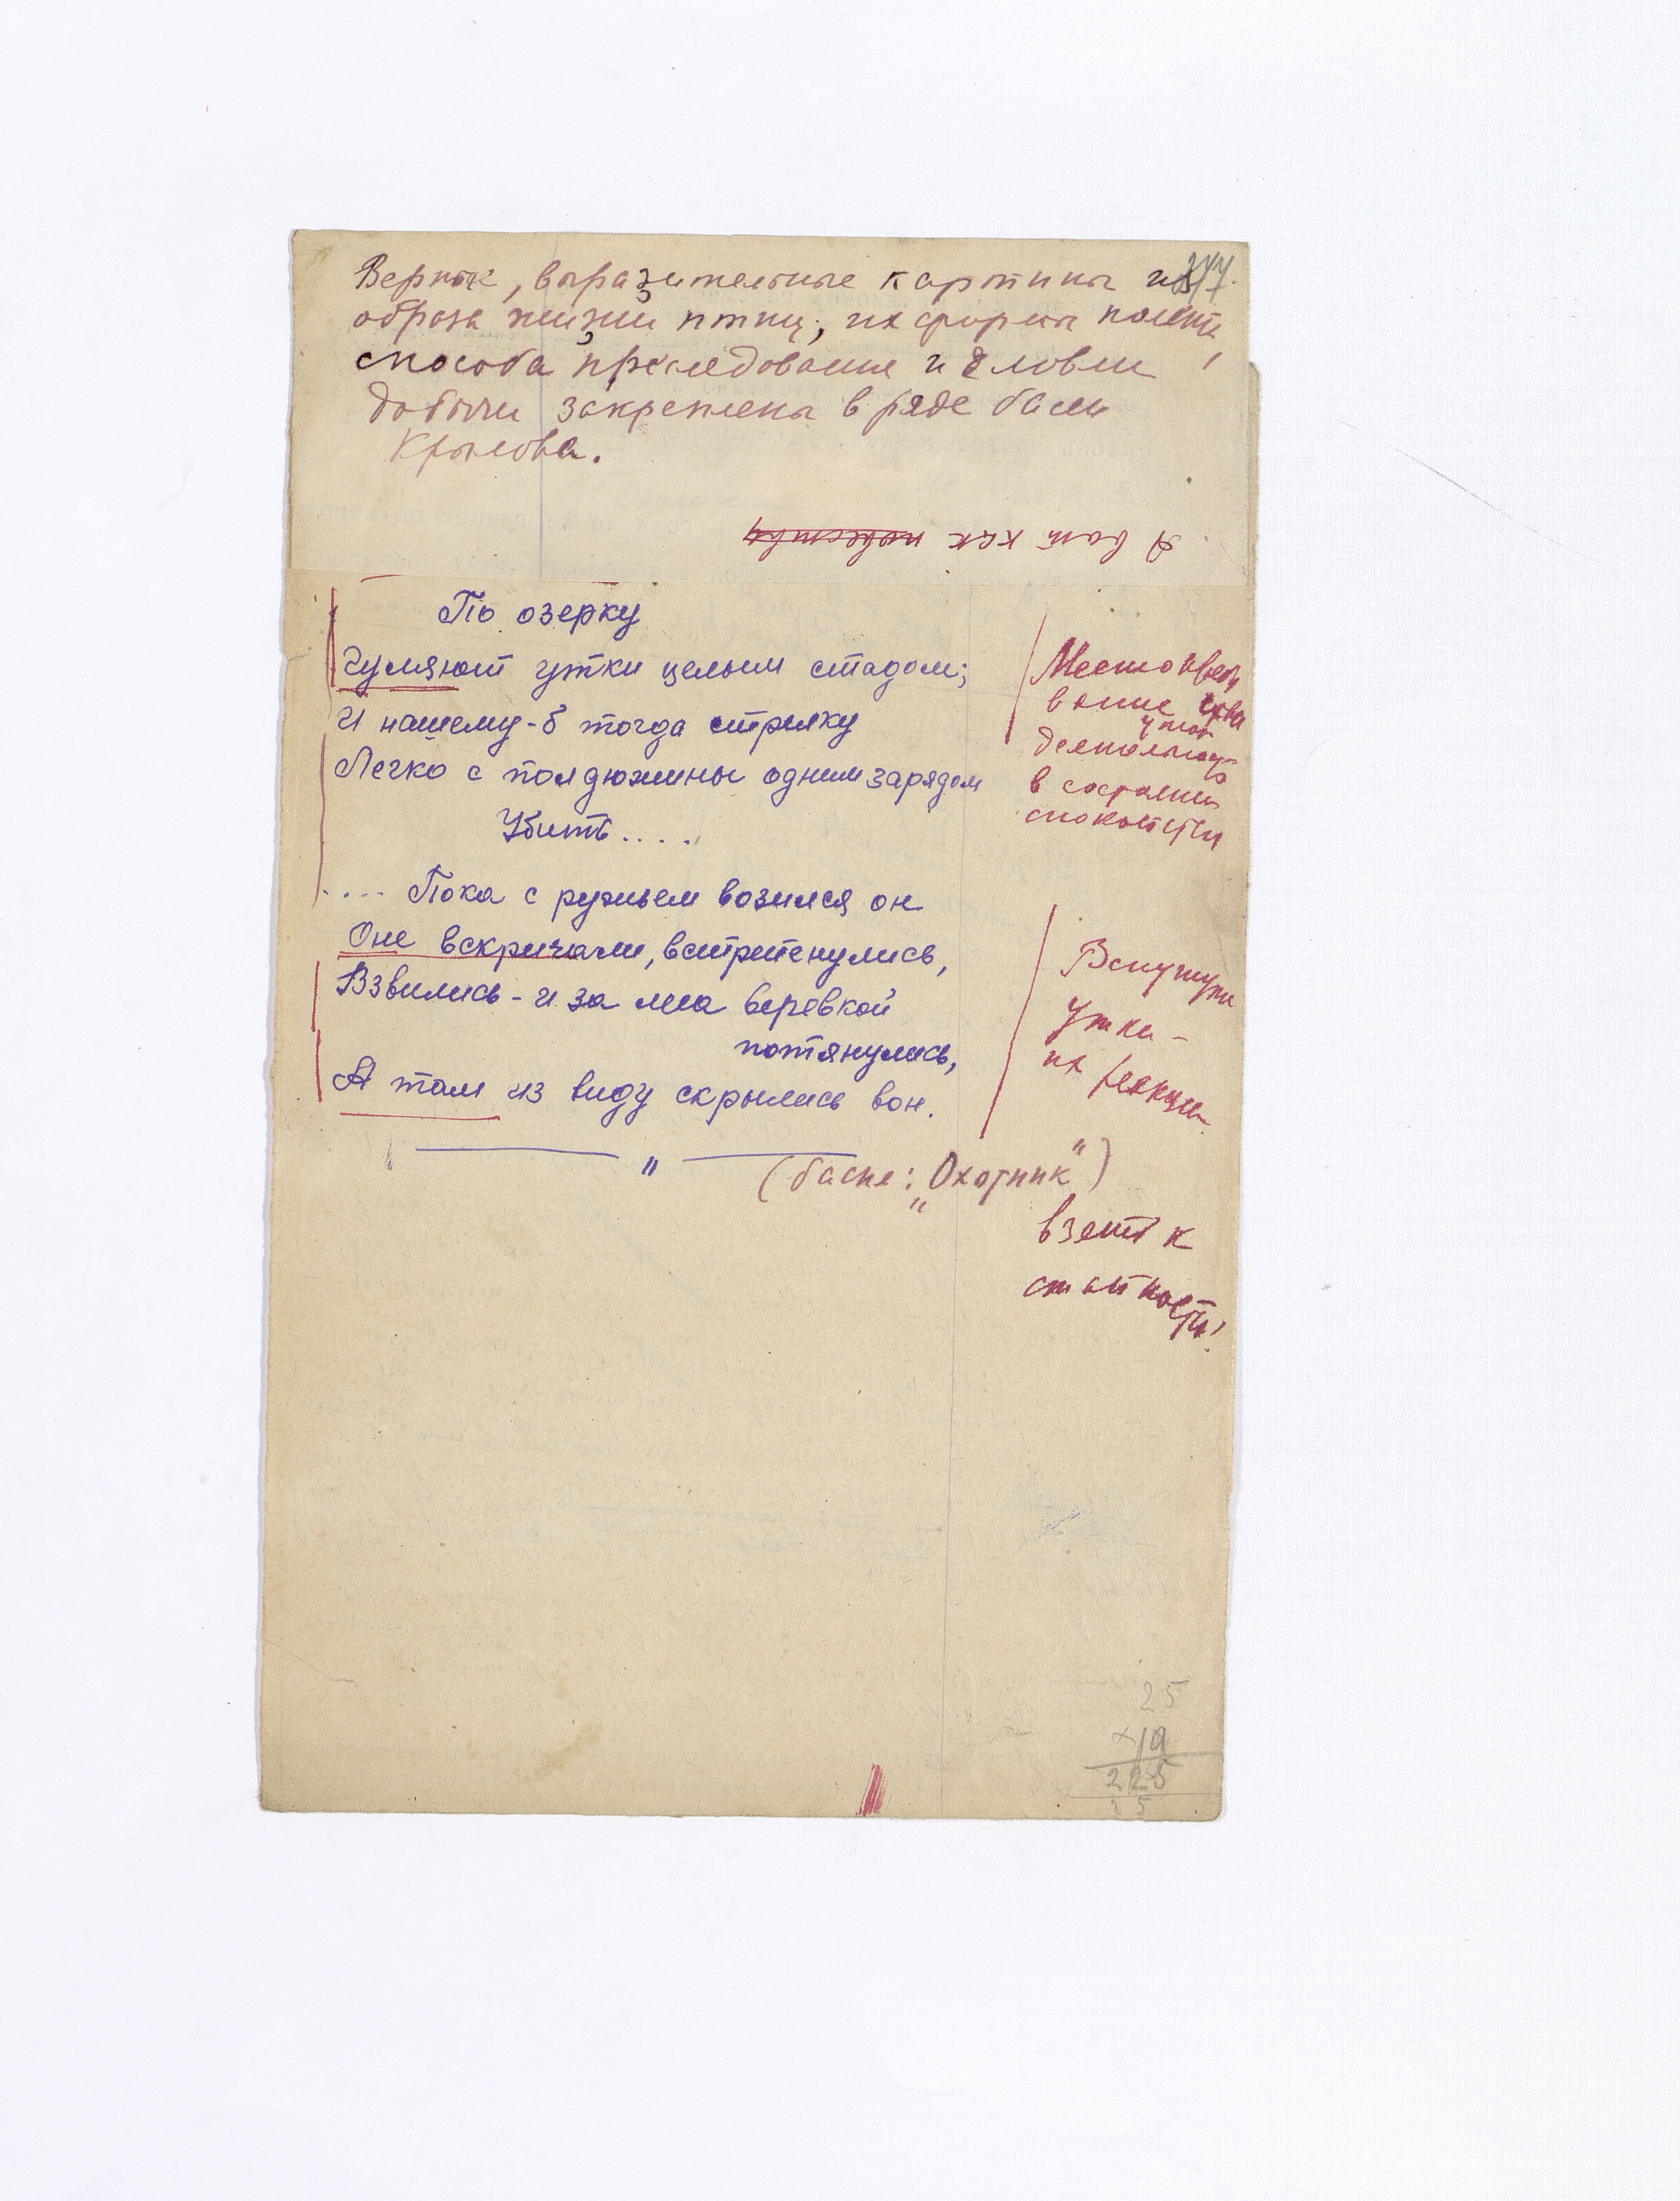 Верные, выразительные картины из
образа жизни птиц, их формы полета,
способа преследования и ловли
добычи закреплена в ряде басен
Крылова.
А вот как
По озерку
Гуляют утки целым стадом;
И нашему-б тогда стрелку
Легко с полдюжины одним зарядом
Убить....
.... Пока с ружьем возился он
Оне вскричали, встрепенулись,
Взвились - и за леса веревкой
потянулись,
А там из виду скрылись вон.
" — " —
(басня: „Охотник")
в
уток
в состоянии
спокойствия
Вспугнули
утки -
их реакция
взлет к
стайности!
25
×19
225
25